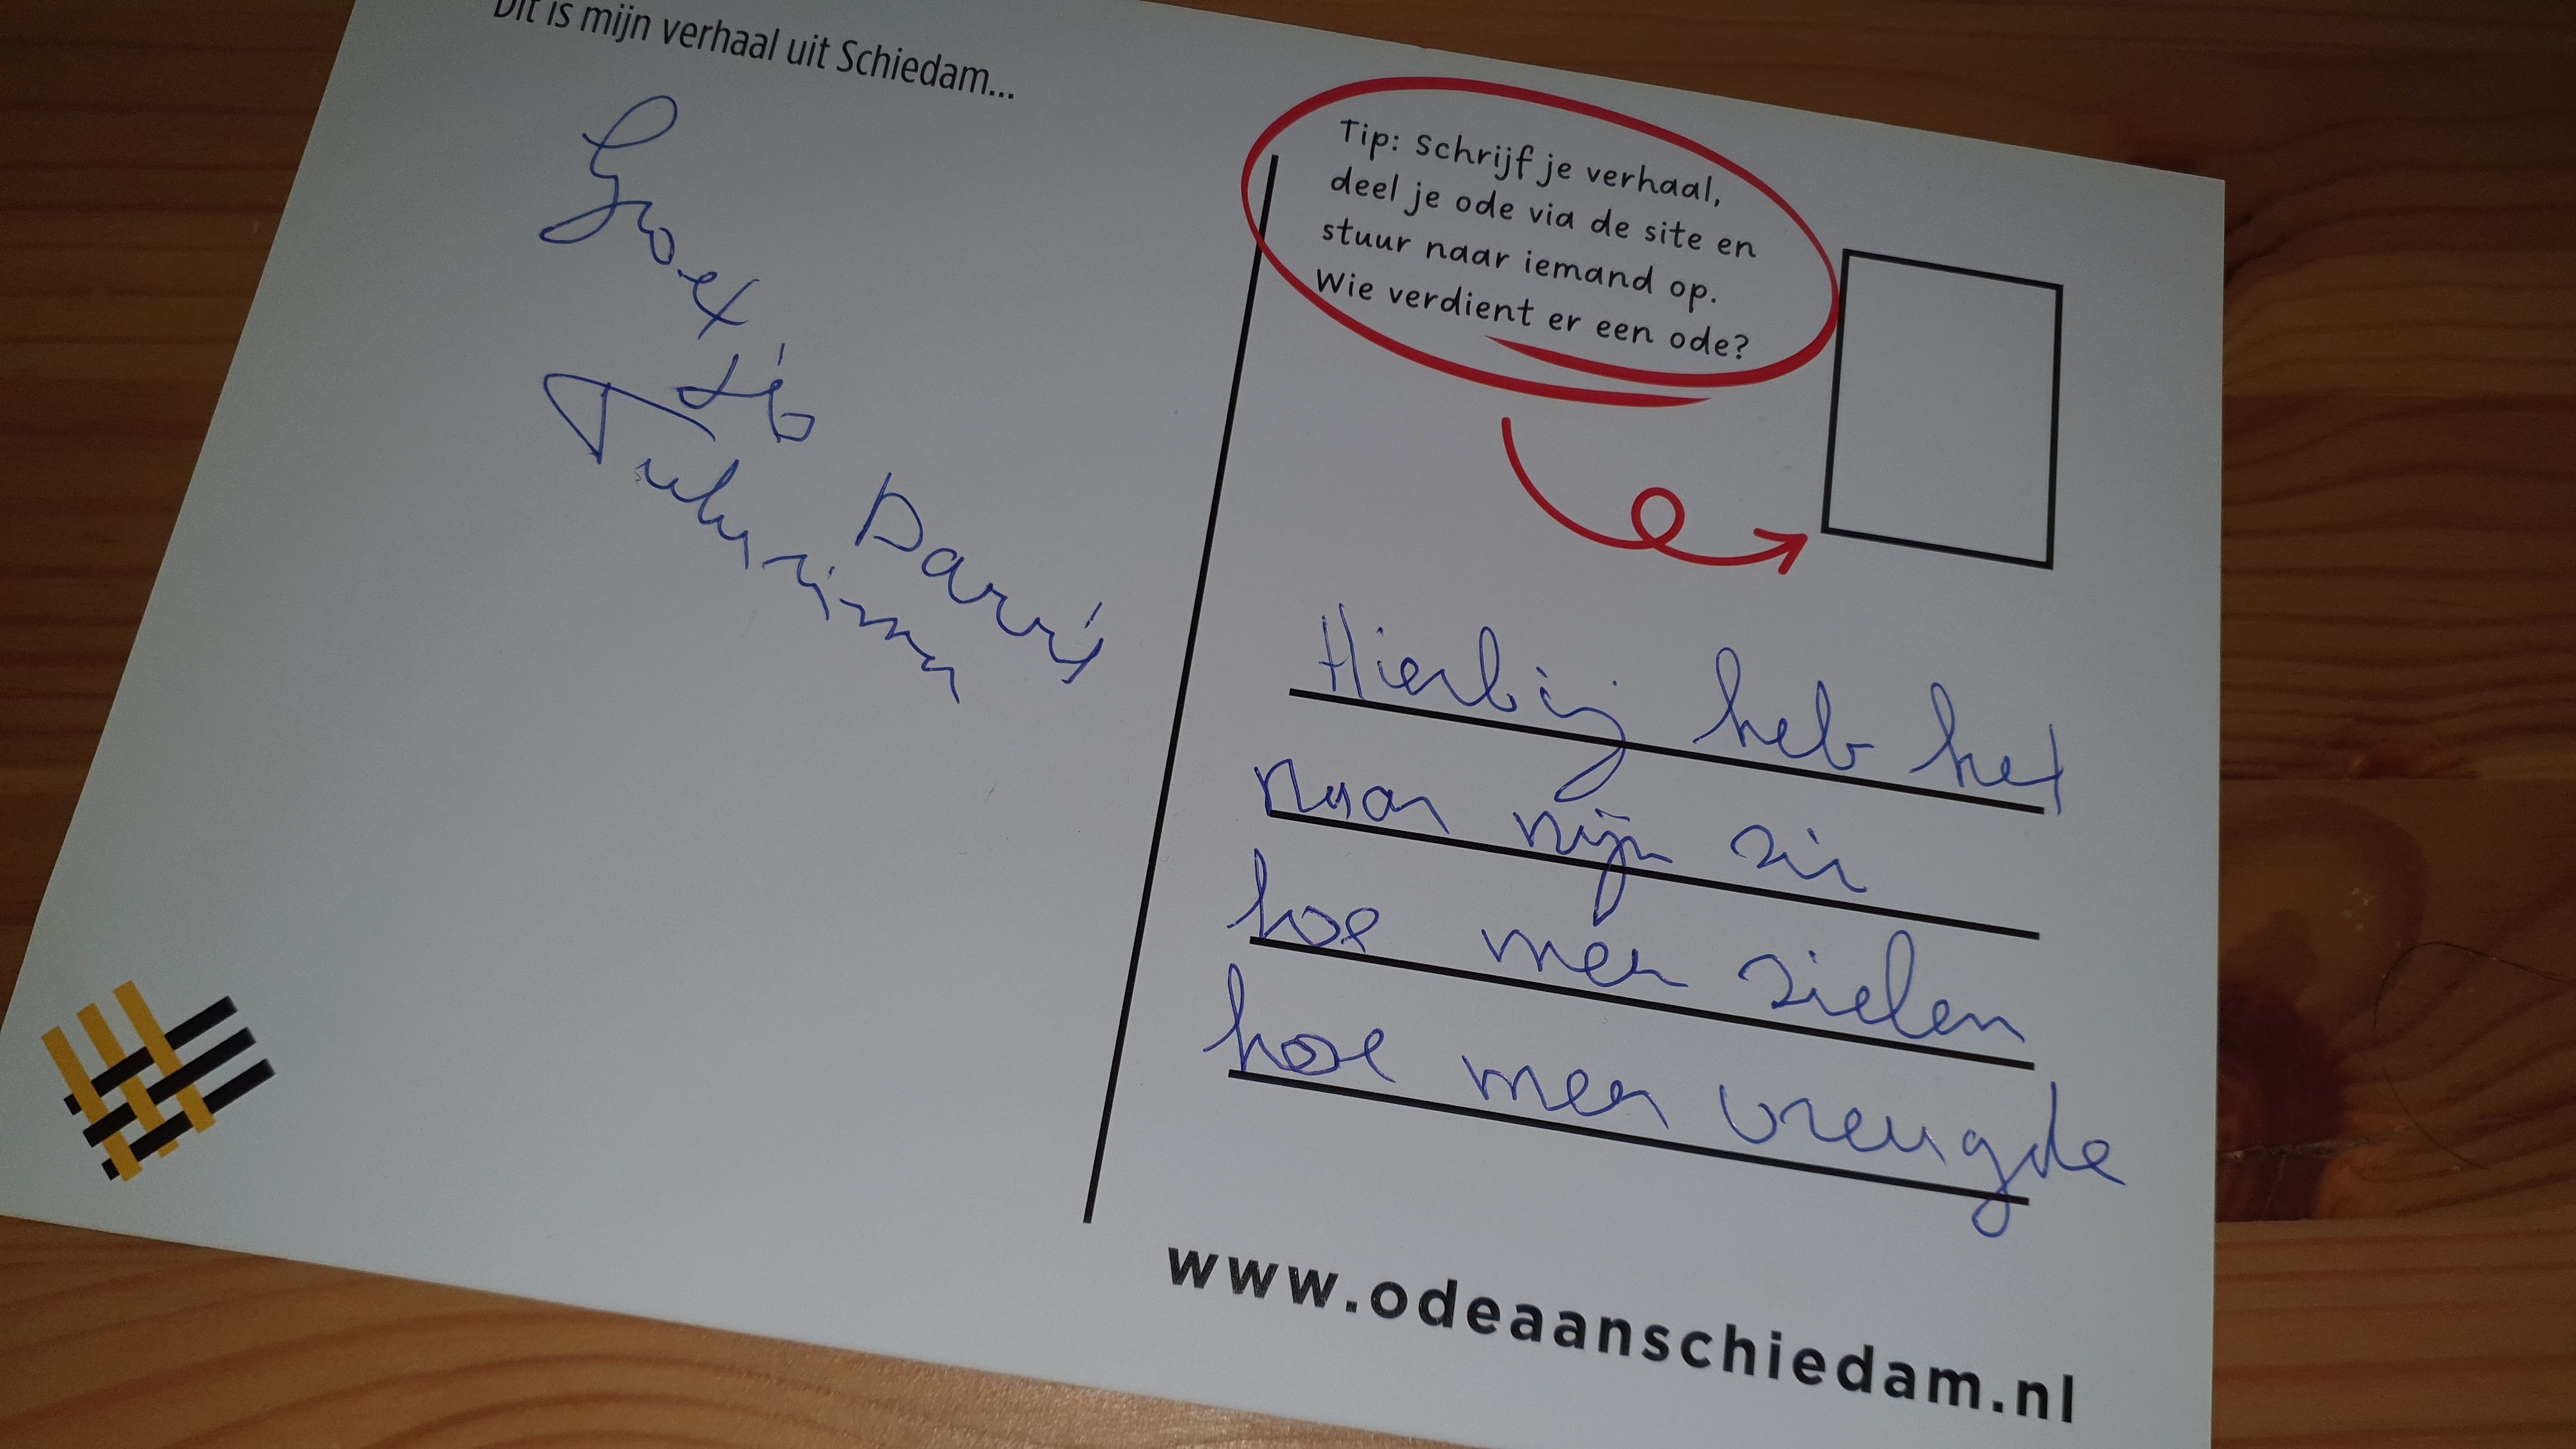 Dit is mijn verhaal uit Schiedam...
Groet
Tip: Schrijf je verhaal,
deel je ode via de site en
stuur naar iemand op.
Wie verdient er een ode?
Hierbij heb het
naar mijn zin
hoe meer zielen
hoe meer vreugde
www.odeaanschiedam.nl